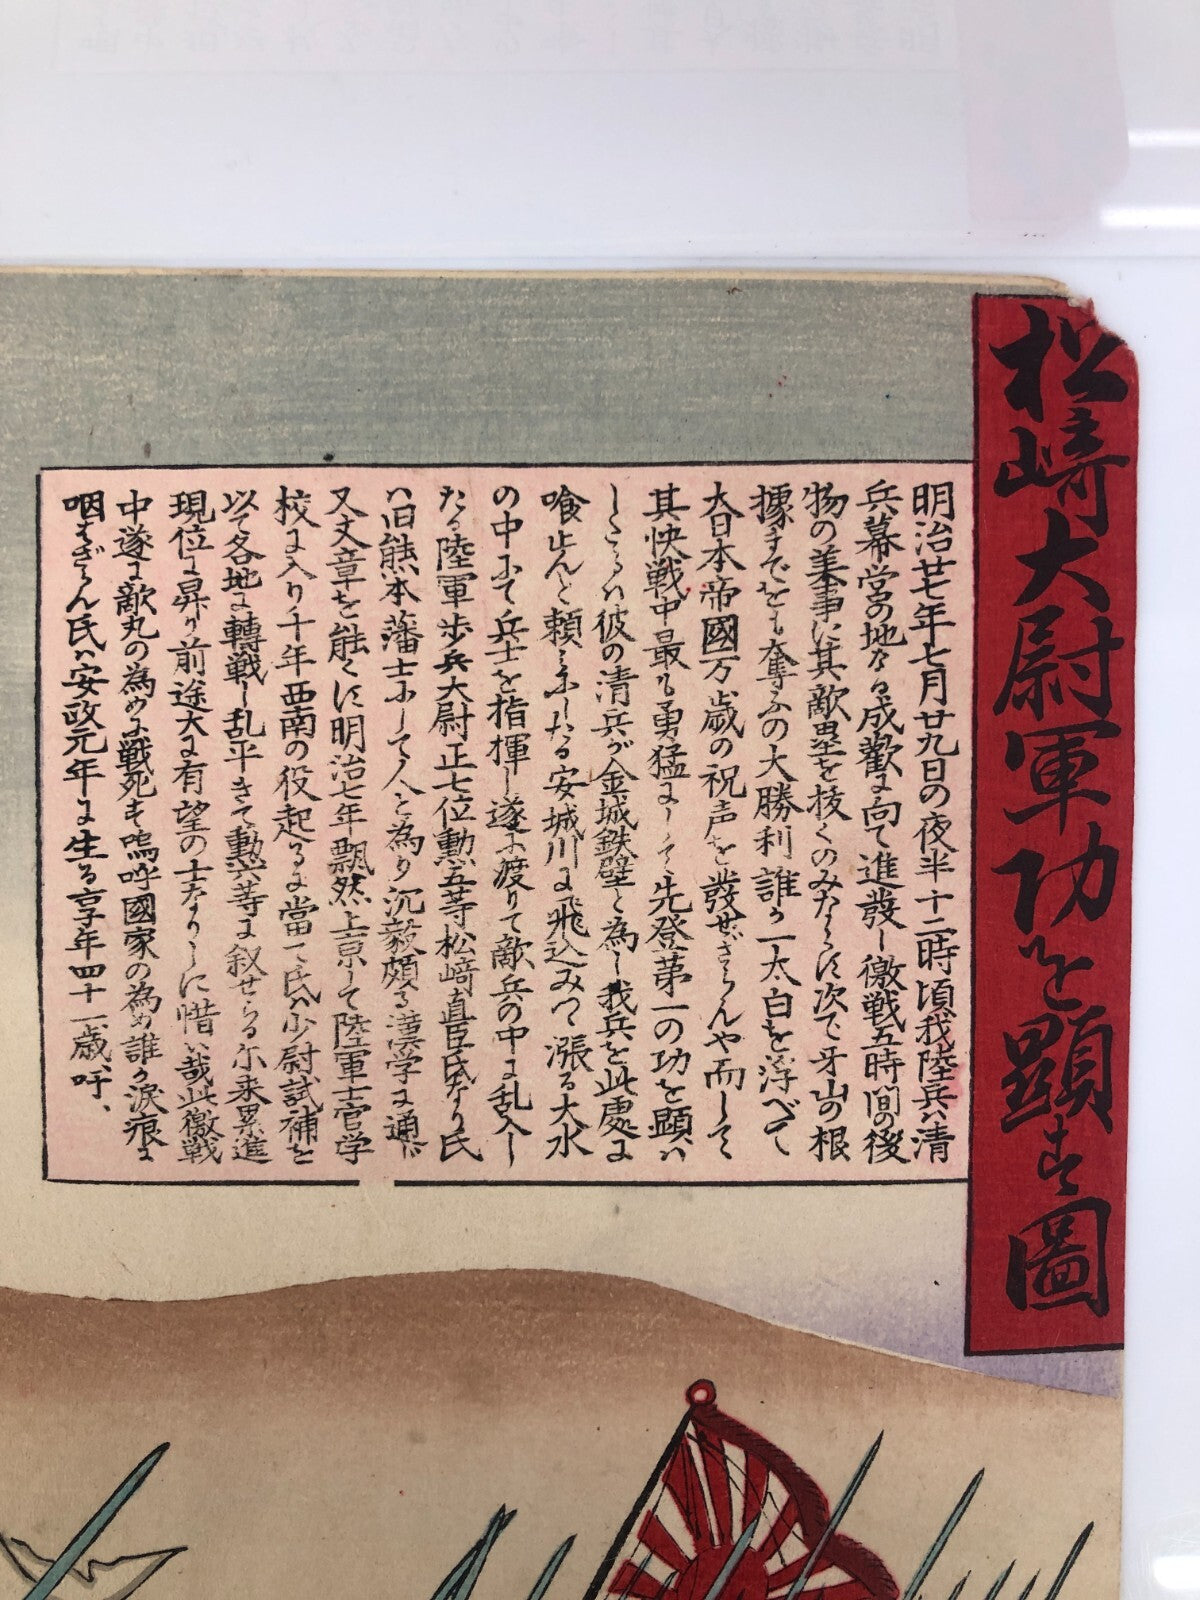 松崎大尉軍功を顕す圖
明治廿七年七月廿九日の夜半十二時頃我陸兵ハ清
兵幕営の地なる成歡に向て進發し激戦五時間の後
物の美事に其敵塁を抜くのみならに次で牙山の根
據までをも奪ふの大勝利誰か一太白を浮べて
大日本帝國万歳の祝声を發せざらんや而して
其快戦中最も勇猛にして先登第一の功を顕ハ
したるハ彼の清兵が金城鉄壁と為し我兵を此處に
喰止んと頼みにしたる安城川に飛込みつゝ漲る大水
の中にて兵士を指揮し遂に渡りて敵兵の中に乱入し
たる陸軍歩兵大尉正七位勲五等松崎直臣氏なり氏
ハ旧熊本藩士にして人と為り沉毅頗る漢学に通じ
又文章を能くに明治七年飄然上京して陸軍士官学
校に入り十年西南の役起るに當て氏ハ少尉試補を
以て各地に轉戦し乱平きて勲六等に叙せらる尓来累進
現位に昇り前途大に有望の士なりしに惜い哉此激戦
中遂に敵丸の為めに戦死す嗚呼國家の為め誰か涙痕に
咽はざらん氏ハ安政元年に生る享年四十一歳、吁、